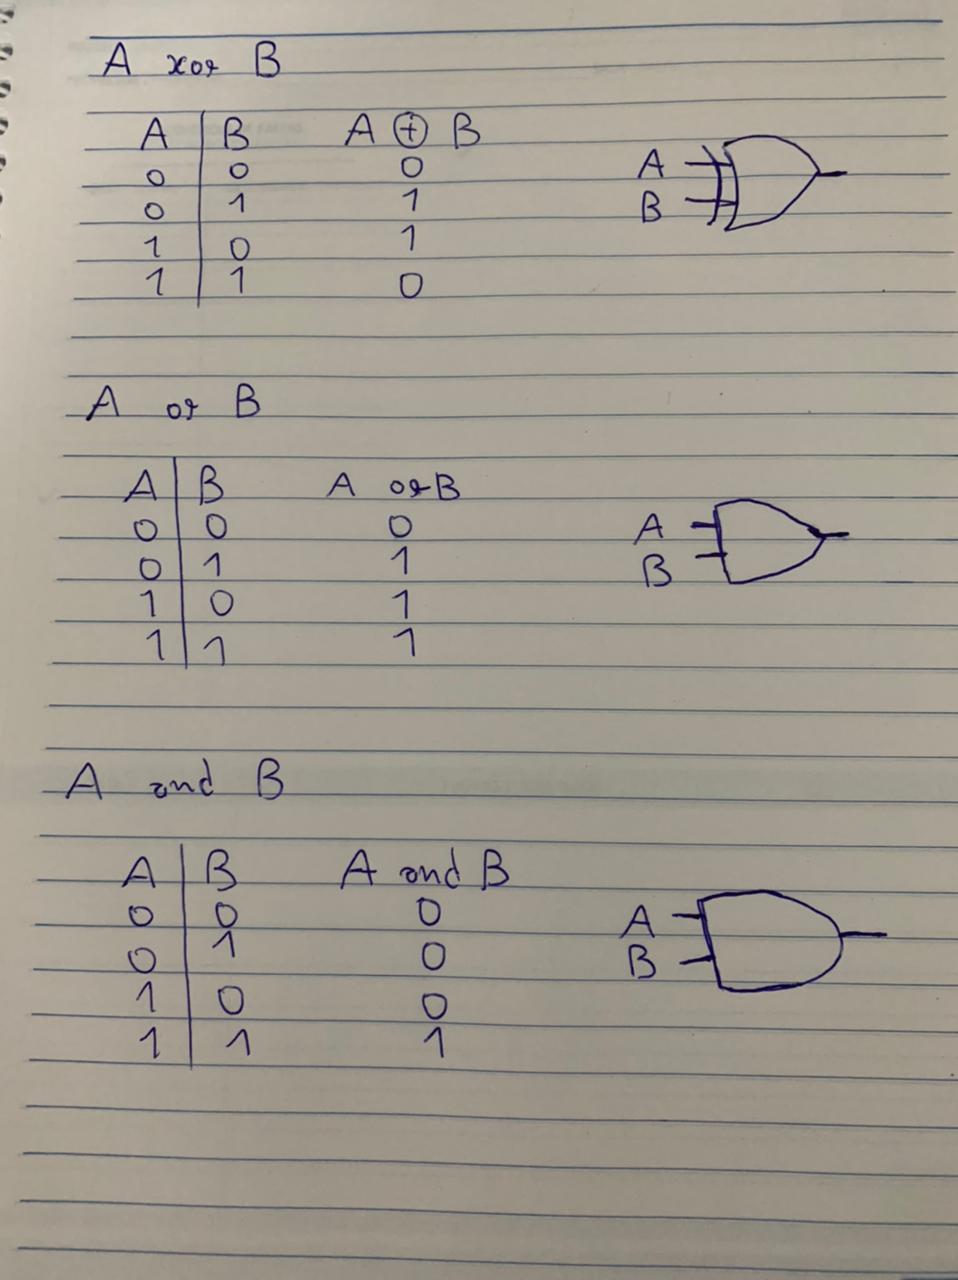 A xor B
A B A ⊕ B
0 0 0
0 1 1
1 0 1
1 1 0
A
B
A or B
A B A or B
0 0 0
0 1 1
1 0 1
1 1 1
A
B
A and B
A B A and B
0 0 0
0 1 0
1 0 0
1 1 1
A
B